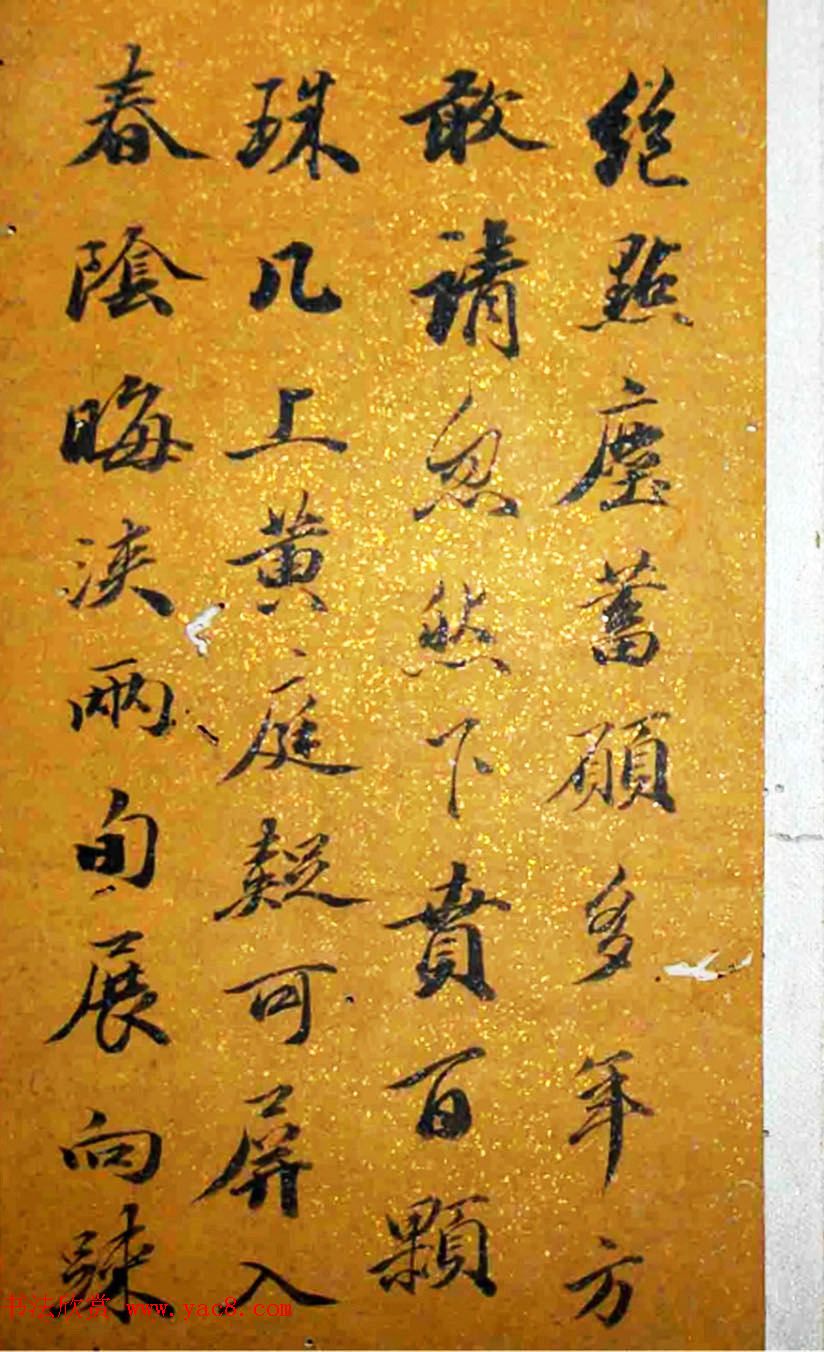 絶點塵蓄願多年方
敢請忽然下賁百顆
珠几上黄庭疑可屏入
春陰晦浹兩旬展向疎
书法欣赏 www.yac8.com